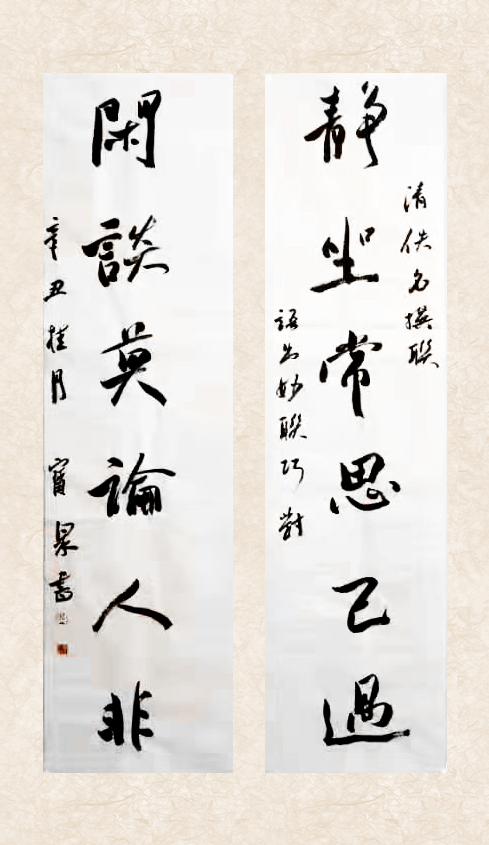 清佚名撰聯
靜坐常思己過
語出妙聯巧對
閑談莫論人非
辛丑桂月 甯杲書